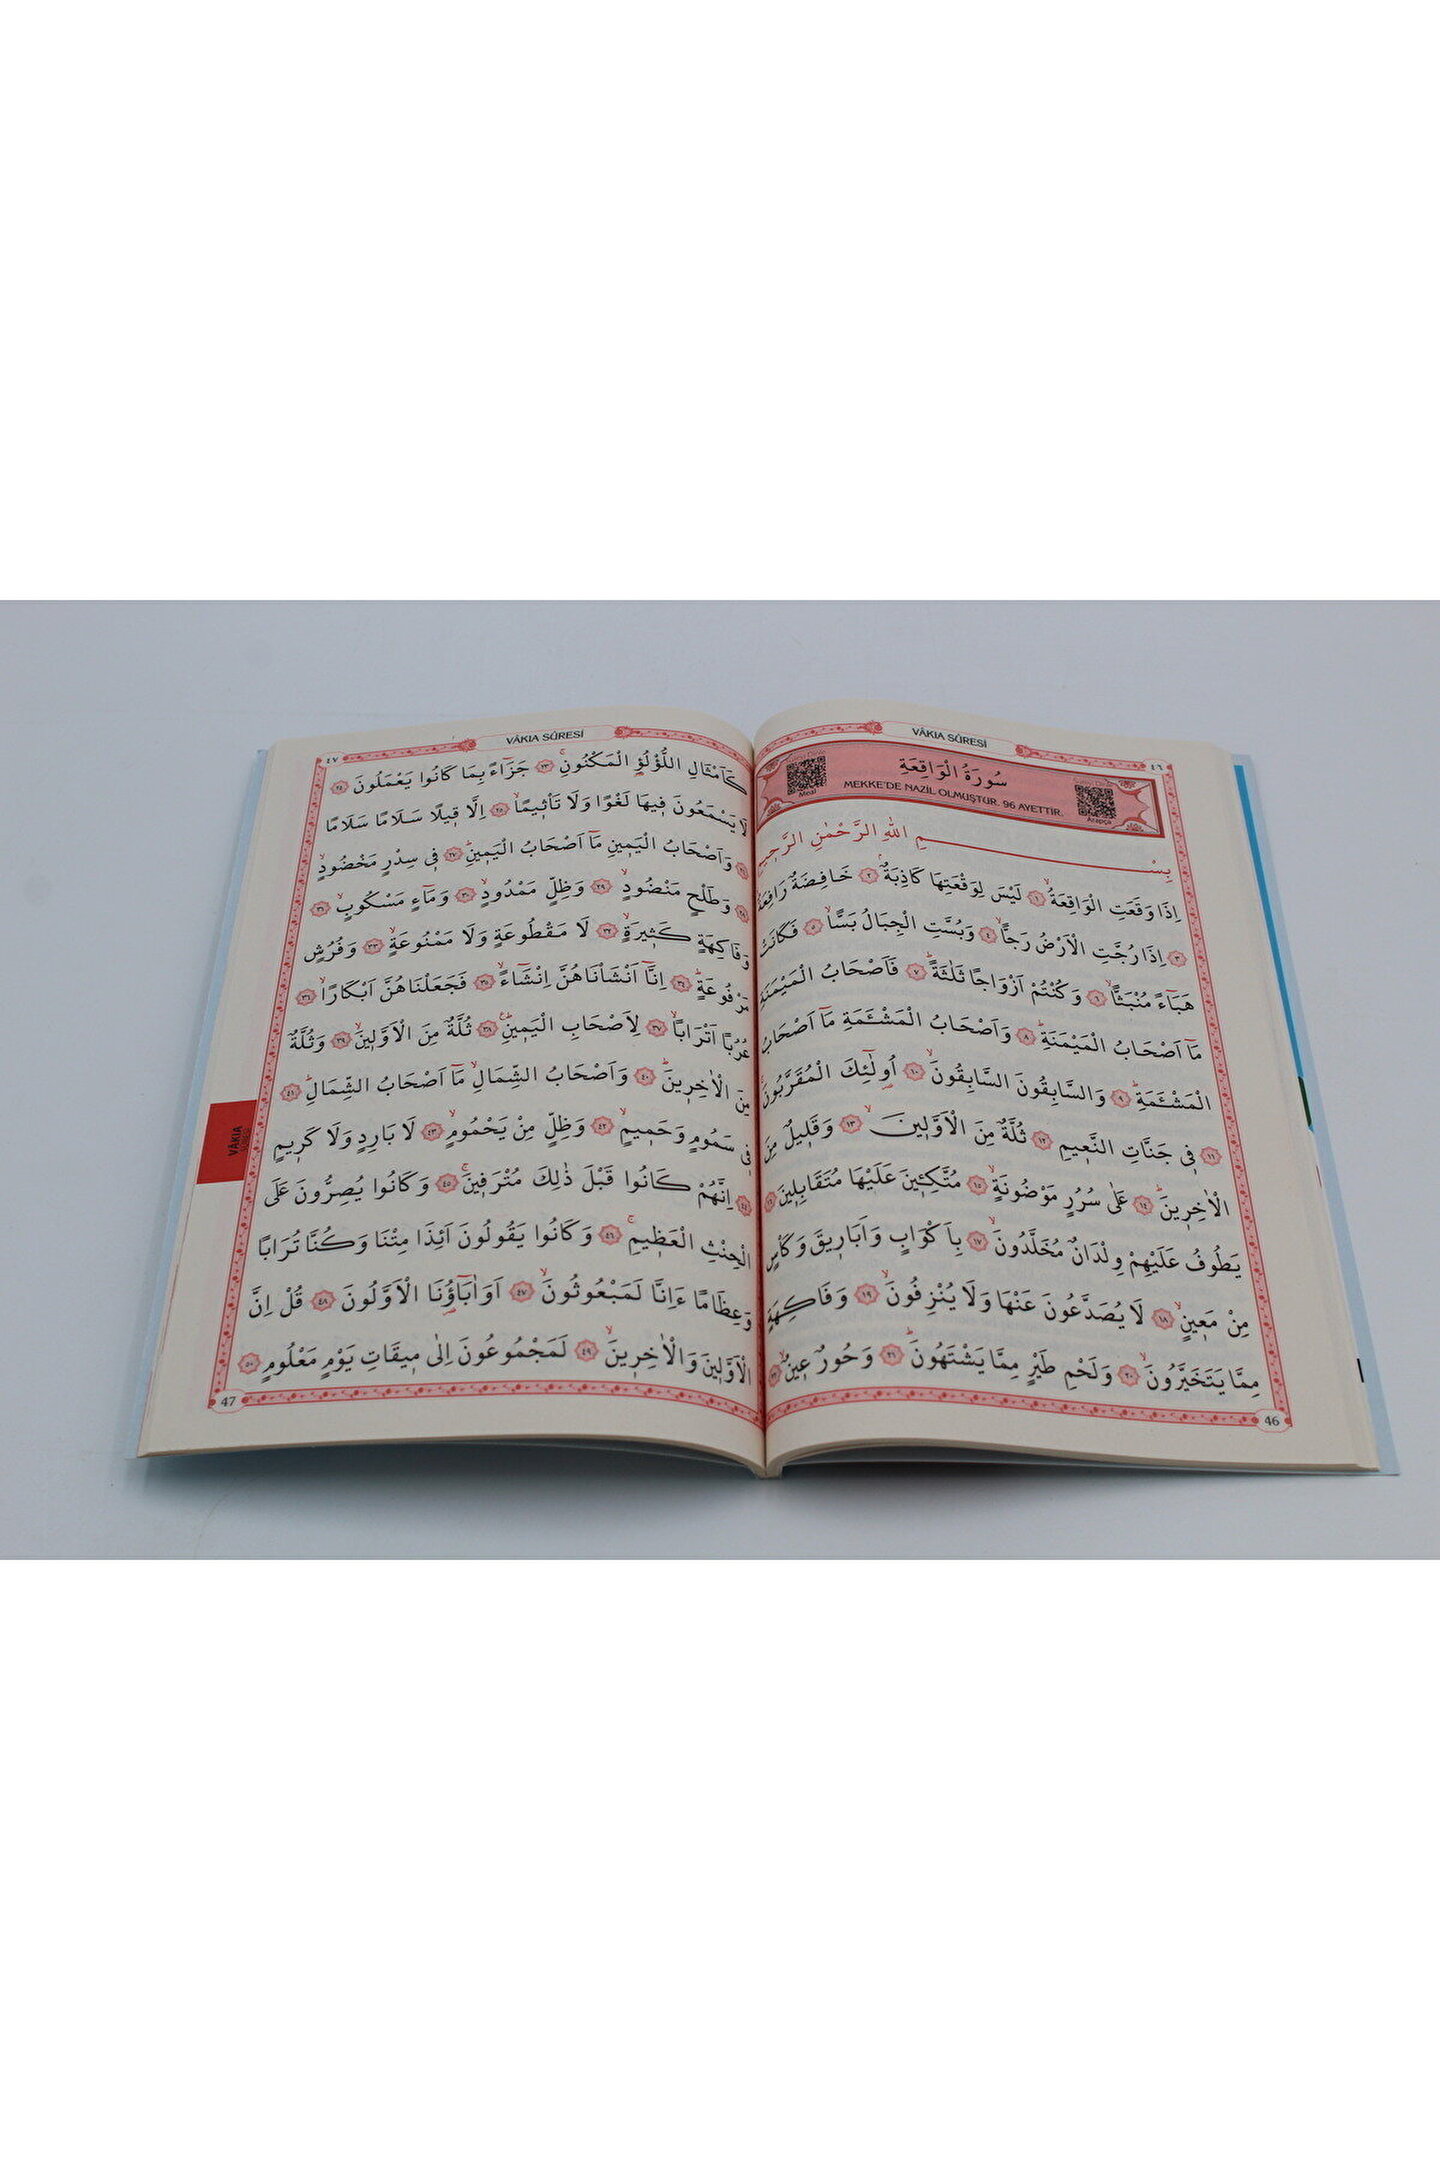 VÂKIA SÛRESİ
٤٦
سُورَةُ الْوَاقِعَةِ
MEKKE'DE NAZİL OLMUŞTUR. 96 AYETTİR.
Meal
Arapça
بِسْمِ اللهِ الرَّحْمٰنِ الرَّحِيمِ
اِذَا وَقَعَتِ الْوَاقِعَةُۙ ﴿١﴾ لَيْسَ لِوَقْعَتِهَا كَاذِبَةٌۢ ﴿٢﴾ خَافِضَةٌ رَافِعَةٌ
﴿٣﴾ اِذَا رُجَّتِ الْاَرْضُ رَجًّاۙ ﴿٤﴾ وَبُسَّتِ الْجِبَالُ بَسًّاۙ ﴿٥﴾ فَكَانَتْ
هَبَٓاءً مُنْبَثًّاۙ ﴿٦﴾ وَكُنْتُمْ اَزْوَاجًا ثَلٰثَةًۜ ﴿٧﴾ فَاَصْحَابُ الْمَيْمَنَةِ
مَٓا اَصْحَابُ الْمَيْمَنَةِۜ ﴿٨﴾ وَاَصْحَابُ الْمَشْـَٔمَةِ مَٓا اَصْحَابُ
الْمَشْـَٔمَةِۜ ﴿٩﴾ وَالسَّابِقُونَ السَّابِقُونَۙ ﴿١٠﴾ اُو۬لٰٓئِكَ الْمُقَرَّبُونَۚ
﴿١١﴾ ف۪ي جَنَّاتِ النَّع۪يمِ ﴿١٢﴾ ثُلَّةٌ مِنَ الْاَوَّل۪ينَۙ ﴿١٣﴾ وَقَل۪يلٌ مِنَ
الْاٰخِر۪ينَۜ ﴿١٤﴾ عَلٰى سُرُرٍ مَوْضُونَةٍۙ ﴿١٥﴾ مُتَّكِـ۪ٔينَ عَلَيْهَا مُتَقَابِل۪ينَ ﴿١٦﴾
يَطُوفُ عَلَيْهِمْ وِلْدَانٌ مُخَلَّدُونَۙ ﴿١٧﴾ بِاَكْوَابٍ وَاَبَار۪يقَ وَكَأْسٍ
مِنْ مَع۪ينٍۙ ﴿١٨﴾ لَا يُصَدَّعُونَ عَنْهَا وَلَا يُنْزِفُونَۙ ﴿١٩﴾ وَفَاكِهَةٍ
مِمَّا يَتَخَيَّرُونَۙ ﴿٢٠﴾ وَلَحْمِ طَيْرٍ مِمَّا يَشْتَهُونَۜ ﴿٢١﴾ وَحُورٌ ع۪ينٌۙ ﴿٢٢﴾
46
VÂKIA SÛRESİ
٤٧
كَاَمْثَالِ اللُّؤْلُؤِ الْمَكْنُونِۚ ﴿٢٣﴾ جَزَٓاءً بِمَا كَانُوا يَعْمَلُونَ ﴿٢٤﴾
لَا يَسْمَعُونَ ف۪يهَا لَغْوًا وَلَا تَأْث۪يمًاۙ ﴿٢٥﴾ اِلَّا ق۪يلًا سَلَامًا سَلَامًا
﴿٢٦﴾ وَاَصْحَابُ الْيَم۪ينِ مَٓا اَصْحَابُ الْيَم۪ينِۜ ﴿٢٧﴾ ف۪ي سِدْرٍ مَخْضُودٍۙ
﴿٢٨﴾ وَطَلْحٍ مَنْضُودٍۙ ﴿٢٩﴾ وَظِلٍّ مَمْدُودٍۙ ﴿٣٠﴾ وَمَٓاءٍ مَسْكُوبٍۙ ﴿٣١﴾
وَفَاكِهَةٍ كَث۪يرَةٍۙ ﴿٣٢﴾ لَا مَقْطُوعَةٍ وَلَا مَمْنُوعَةٍۙ ﴿٣٣﴾ وَفُرُشٍ
مَرْفُوعَةٍۜ ﴿٣٤﴾ اِنَّٓا اَنْشَأْنَاهُنَّ اِنْشَٓاءًۙ ﴿٣٥﴾ فَجَعَلْنَاهُنَّ اَبْكَارًاۙ ﴿٣٦﴾
عُرُبًا اَتْرَابًاۙ ﴿٣٧﴾ لِاَصْحَابِ الْيَم۪ينِۜ ﴿٣٨﴾ ثُلَّةٌ مِنَ الْاَوَّل۪ينَۙ ﴿٣٩﴾ وَثُلَّةٌ
مِنَ الْاٰخِر۪ينَۜ ﴿٤٠﴾ وَاَصْحَابُ الشِّمَالِۙ مَٓا اَصْحَابُ الشِّمَالِۜ ﴿٤١﴾
ف۪ي سَمُومٍ وَحَم۪يمٍۙ ﴿٤٢﴾ وَظِلٍّ مِنْ يَحْمُومٍۙ ﴿٤٣﴾ لَا بَارِدٍ وَلَا كَر۪يمٍ
﴿٤٤﴾ اِنَّهُمْ كَانُوا قَبْلَ ذٰلِكَ مُتْرَف۪ينَۚ ﴿٤٥﴾ وَكَانُوا يُصِرُّونَ عَلَى
الْحِنْثِ الْعَظ۪يمِۚ ﴿٤٦﴾ وَكَانُوا يَقُولُونَ اَئِذَا مِتْنَا وَكُنَّا تُرَابًا
وَعِظَامًا ءَاِنَّا لَمَبْعُوثُونَۙ ﴿٤٧﴾ اَوَاٰبَٓاؤُ۬نَا الْاَوَّلُونَ ﴿٤٨﴾ قُلْ اِنَّ
الْاَوَّل۪ينَ وَالْاٰخِر۪ينَۙ ﴿٤٩﴾ لَمَجْمُوعُونَ اِلٰى م۪يقَاتِ يَوْمٍ مَعْلُومٍ ﴿٥٠﴾
VÂKIA
47